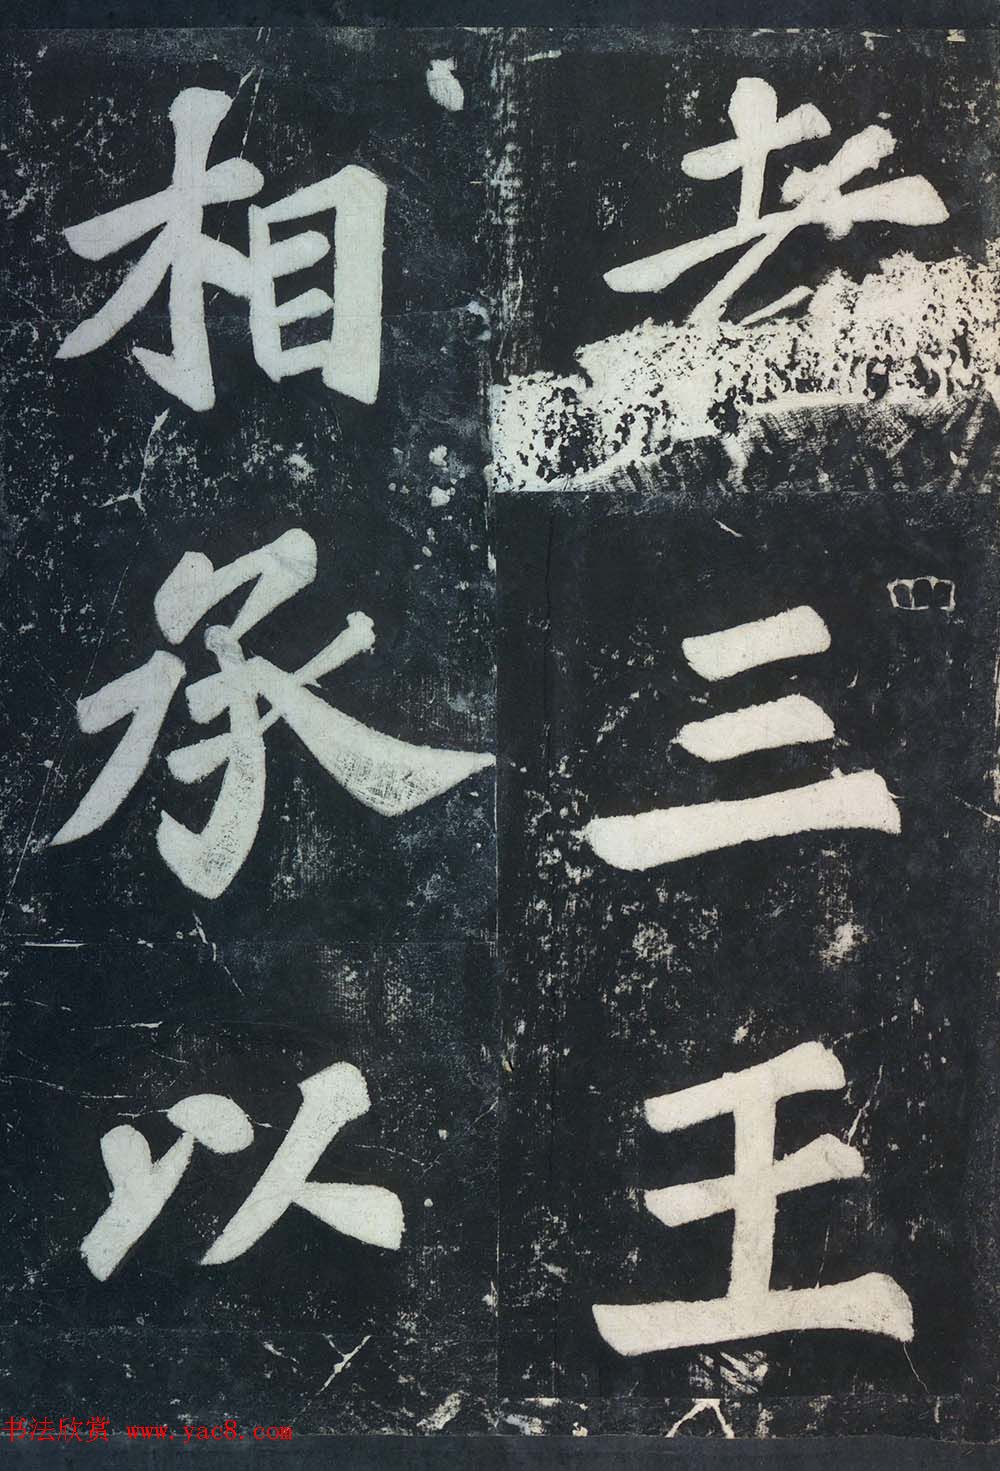 三王
相承以
书法欣赏 www.yac8.com